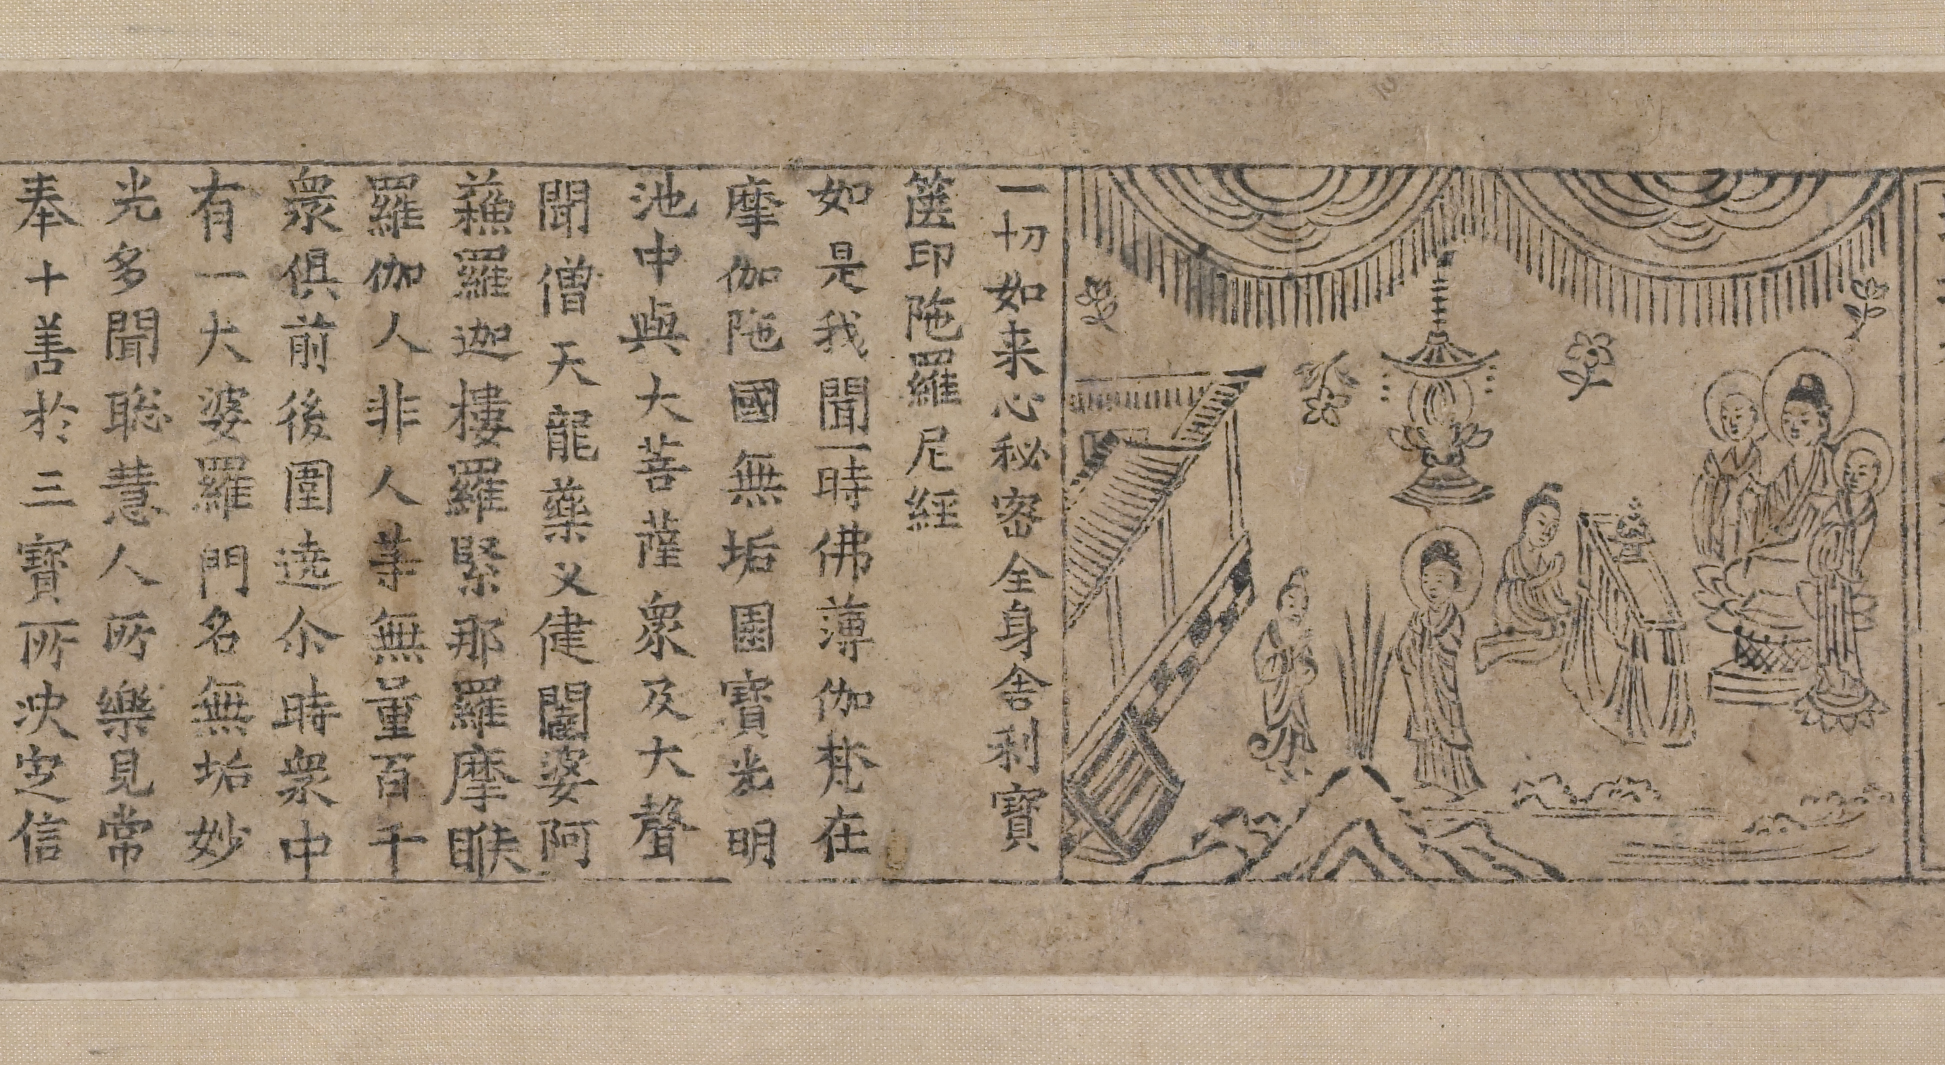 一切如来心秘密全身舍利寶
篋印陁羅尼經
如是我聞一時佛薄伽梵在
摩伽陁國無垢園寶光明
池中與大菩薩衆及大聲
聞僧天龍藥叉健闥婆阿
蘓羅迦樓羅緊那羅摩睺
羅伽人非人等無量百千
衆俱前後圍遶尒時衆中
有一大婆羅門名無垢妙
光多聞聡慧人所樂見常
奉十善於三寶所決定信